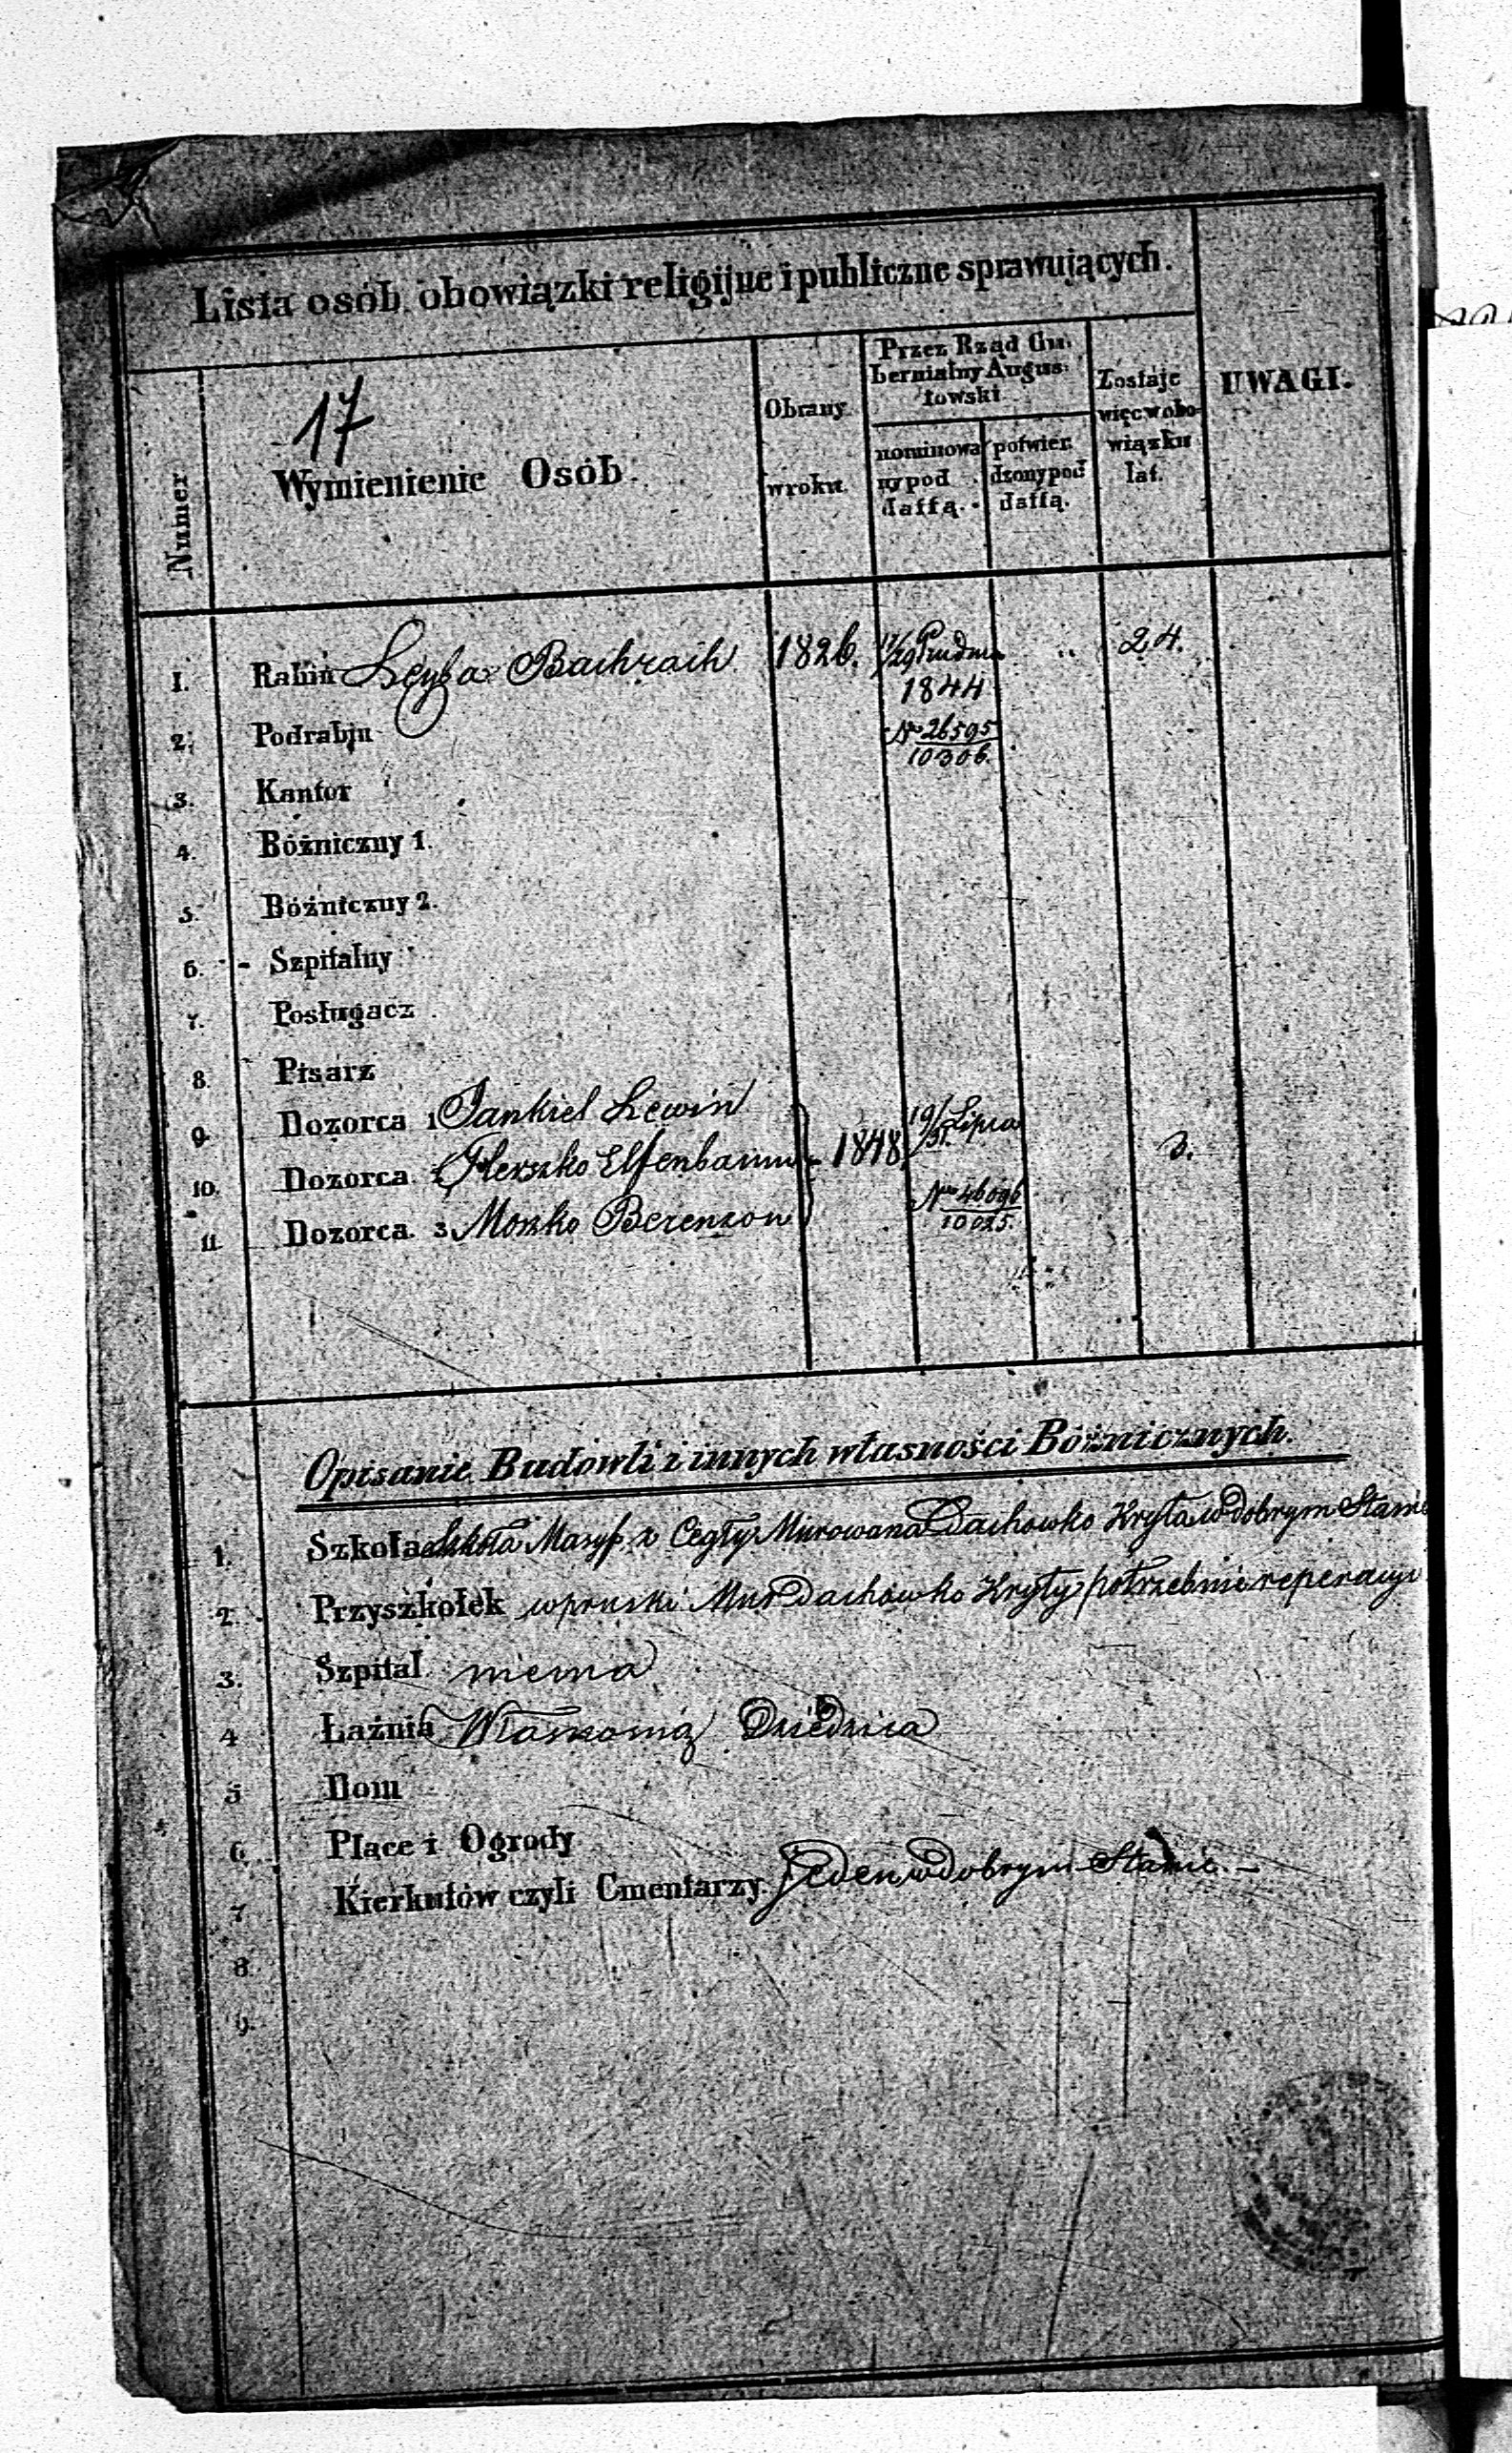 Lista osób obowiązki religijne i publiczne sprawujących.
17
Numer
Wymienienie Osób
Obrany w roku.
Przez Rząd Gu-
bernialny Augus-
towski
nominowa
ny pod
dattą.
potwier
dzony pod
dattą.
Zostaje
więc w obo-
wiązku
lat.
UWAGI.
1. Rabin Leyba Bachrach 1826. 17/29 Grudnia 24.
1844
2. Podrabin No 26595
10306.
3. Kantor
4. Bóżniczny 1.
5. Bóżniczny 2.
6. Szpitalny
7. Posługacz
8. Pisarz
9. Dozorca 1 Jankiel Lewin 19/31 Lipca
10. Dozorca 2 Herszko Elfenbaum 1848. 3.
11. Dozorca 3 Moszko Berenzon No 46096
10025.
Opisanie Budowli i innych własności Bóżnicznych.
1. Szkoła Szkoła Masyf. z Cegły Murowana Dachowko Kryta w dobrym Stanie
2. Przyszkołek w pruski Mur Dachowko Kryty potrzebuie reperacyi
3. Szpital niema
4 Łaźnia Własnoścą Dziedzica
5 Dom
6. Place i Ogrody
7 Kierkutów czyli Cmentarzy. Jeden w dobrym Stanie. –
8.
9.